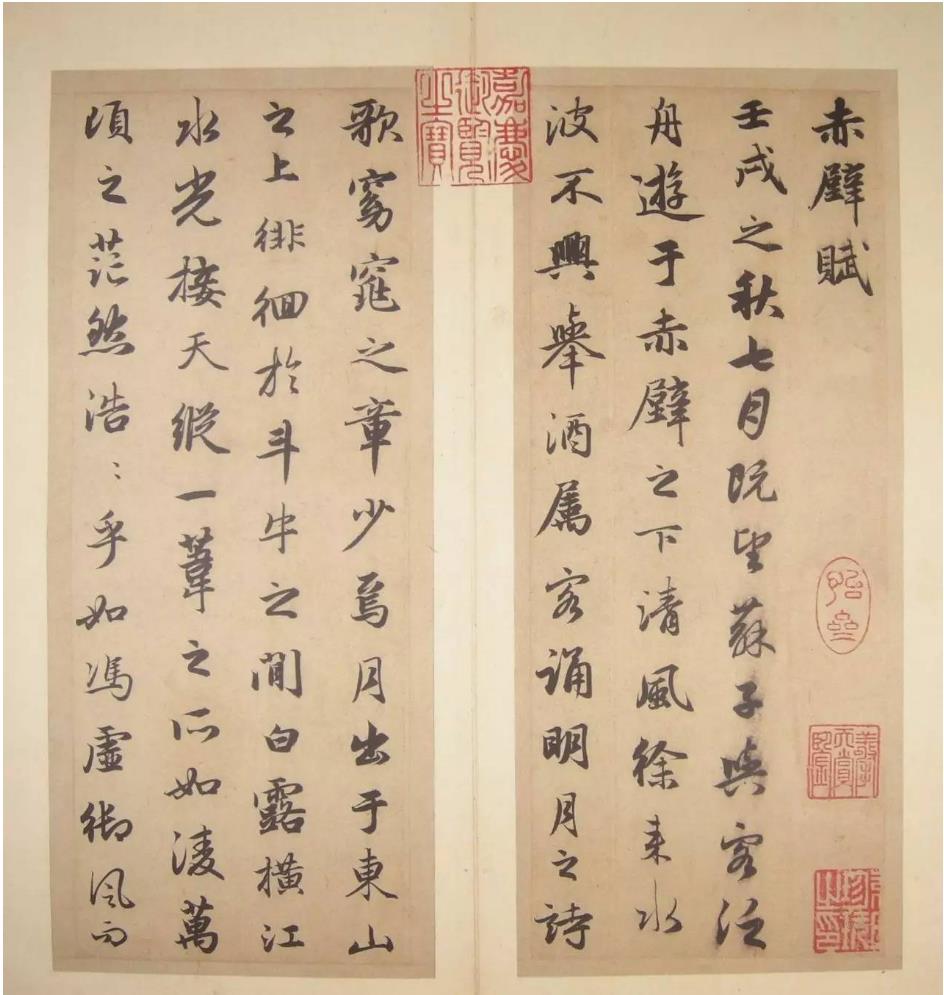 赤壁賦
壬戌之秋七月既望蘇子與客泛
舟遊于赤壁之下清風徐来水
波不興舉酒属客誦明月之詩
歌窈窕之章少焉月出于東山
之上徘徊於斗牛之間白露橫江
水光接天縱一葦之所如凌萬
頃之茫然浩〻乎如馮虚御風而
嘉慶御覽之寶